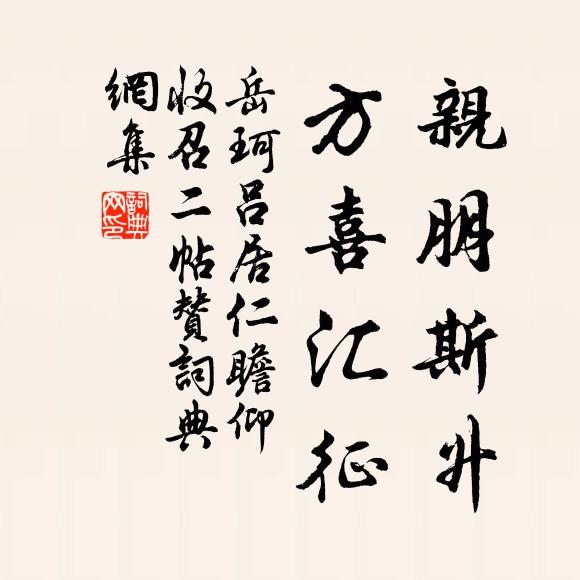 親朋斯升
方喜汇征
岳珂吕居仁瞻仰
收召二帖赞詞典
網集
詞典
网印